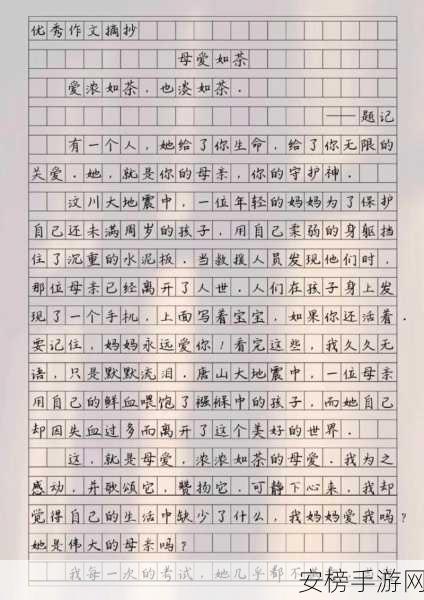 优秀作文摘抄
母爱如茶
爱浓如茶.也淡如茶.
——题记
有一个人,她给了你生命,给了你无限的
关爱.她,就是你的母亲,你的守护神.
汶川大地震中,一位年轻的妈妈为了保护
自己还未满周岁的孩子,用自己柔弱的身躯挡
住了沉重的水泥板.当救援人员发现他们时,
那位母亲已经离开了人世.人们在孩子身上发
现了一个手机,上面写着宝宝,如果你还活着.
要记住,妈妈永远爱你!看完这些,我久久无
语,只是默默流泪.唐山大地震中,一位母亲
用自己的鲜血喂饱了襁褓中的孩子,而她自己
却因失血过多而离开了这个美好的世界.
这,就是母爱,浓浓如茶的母爱.我为之
感动,并歌颂它,赞扬它.可静下心来,我却
觉得自己的生活中缺少了什么,我妈妈爱我吗?
她是伟大的母亲吗?
我每一次的考试,她几乎都不
安榜手游网